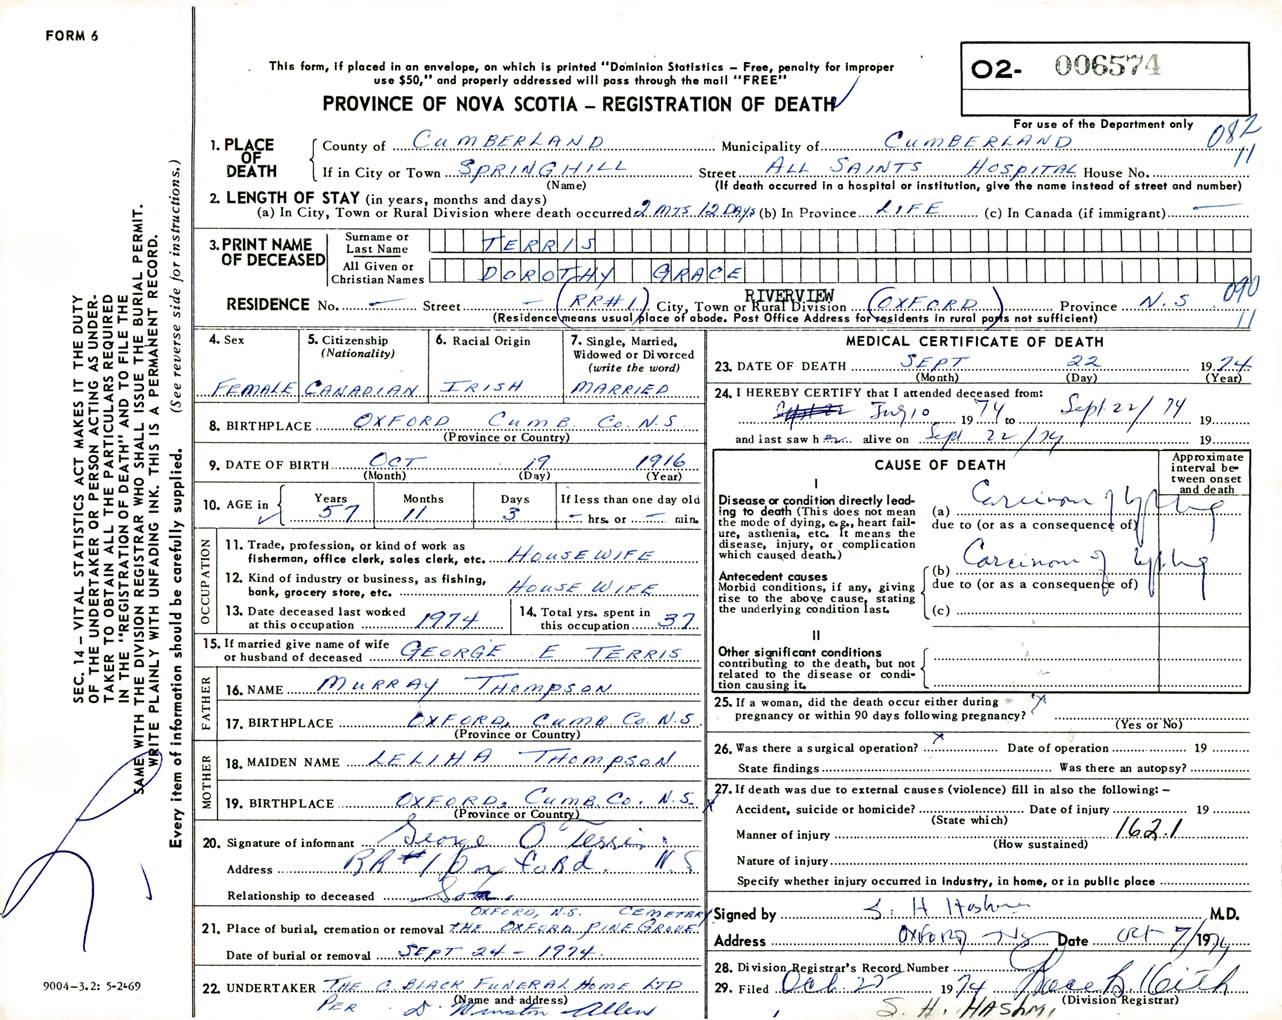 FORM 6
This form, if placed in an envelope, on which is printed "Dominion Statistics – Free, penalty for improper
use $50," and properly addressed will pass through the mail "FREE"
PROVINCE OF NOVA SCOTIA – REGISTRATION OF DEATH
O2- 006574
For use of the Department only
082
11
1. PLACE OF DEATH
County of CUMBERLAND Municipality of CUMBERLAND
If in City or Town SPRINGHILL Street ALL SAINTS HOSPITAL House No.
(Name) (If death occurred in a hospital or institution, give the name instead of street and number)
2. LENGTH OF STAY (in years, months and days)
(a) In City, Town or Rural Division where death occurred 2 MTS 12 DAYS (b) In Province LIFE (c) In Canada (if immigrant) —
3. PRINT NAME OF DECEASED
Surname or Last Name TERRIS
All Given or Christian Names DOROTHY GRACE
RIVERVIEW
090
11
RESIDENCE No. — Street — (RR#1) City, Town or Rural Division (OXFORD) Province N.S.
(Residence means usual place of abode. Post Office Address for residents in rural parts not sufficient)
4. Sex
FEMALE
5. Citizenship
(Nationality)
CANADIAN
6. Racial Origin
IRISH
7. Single, Married,
Widowed or Divorced
(write the word)
MARRIED
8. BIRTHPLACE OXFORD CUMB. CO. N.S.
(Province or Country)
9. DATE OF BIRTH OCT 19 1916
(Month) (Day) (Year)
10. AGE in
Years Months Days If less than one day old
57 11 3 — hrs. or — min.
OCCUPATION
11. Trade, profession, or kind of work as
fisherman, office clerk, sales clerk, etc. HOUSEWIFE
12. Kind of industry or business, as fishing,
bank, grocery store, etc. HOUSE WIFE
13. Date deceased last worked
at this occupation 1974
14. Total yrs. spent in
this occupation 37
15. If married give name of wife
or husband of deceased GEORGE E TERRIS
FATHER
16. NAME MURRAY THOMPSON
17. BIRTHPLACE OXFORD, CUMB CO. N.S.
(Province or Country)
MOTHER
18. MAIDEN NAME THOMPSON
19. BIRTHPLACE OXFORD, CUMB. CO. N.S.
(Province or Country)
20. Signature of informant George O Terris
Address RR#1 Oxford. N.S
Relationship to deceased Son.
OXFORD, N.S. CEMETERY
21. Place of burial, cremation or removal THE OXFORD PINE GROVE
Date of burial or removal SEPT 24 – 1974.
22. UNDERTAKER THE C. BLACK FUNERAL HOME LTD
(Name and address)
PER D. Winston Allen
MEDICAL CERTIFICATE OF DEATH
23. DATE OF DEATH SEPT 22 1974
(Month) (Day) (Year)
24. I HEREBY CERTIFY that I attended deceased from:
10 1974 to Sept. 22/74 19
and last saw her alive on Sept 22/74 19
CAUSE OF DEATH
Approximate
interval be-
tween onset
and death
I
Disease or condition directly lead-
ing to death (This does not mean
the mode of dying, e.g., heart fail-
ure, asthenia, etc. It means the
disease, injury, or complication
which caused death.)
(a) Carcinoma of lung
due to (or as a consequence of)
Antecedent causes
Morbid conditions, if any, giving
rise to the above cause, stating
the underlying condition last.
(b) Carcinoma of lung
due to (or as a consequence of)
(c)
II
Other significant conditions
contributing to the death, but not
related to the disease or condi-
tion causing it.
25. If a woman, did the death occur either during
pregnancy or within 90 days following pregnancy? x
(Yes or No)
26. Was there a surgical operation? x Date of operation 19
State findings Was there an autopsy?
27. If death was due to external causes (violence) fill in also the following: –
Accident, suicide or homicide? Date of injury 19
(State which)
Manner of injury 162.1
(How sustained)
Nature of injury
Specify whether injury occurred in industry, in home, or in public place
Signed by S. H Hashmi M.D.
Address OXFORD NS Date Oct 7/1974
28. Division Registrar's Record Number
29. Filed Oct. 25 1974 Keith
(Division Registrar)
S. H. HASHMI
SEC. 14 – VITAL STATISTICS ACT MAKES IT THE DUTY
OF THE UNDERTAKER OR PERSON ACTING AS UNDER-
TAKER TO OBTAIN ALL THE PARTICULARS REQUIRED
IN THE "REGISTRATION OF DEATH" AND TO FILE THE
SAME WITH THE DIVISION REGISTRAR WHO SHALL ISSUE THE BURIAL PERMIT.
WRITE PLAINLY WITH UNFADING INK. THIS IS A PERMANENT RECORD.
Every item of information should be carefully supplied. (See reverse side for instructions.)
9004-3.2: 5-2-69